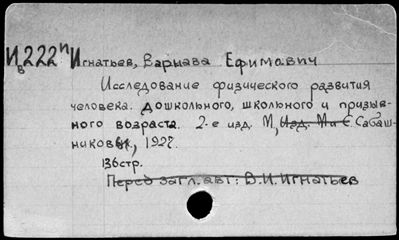 Ив222п Игнатьев, Варнава Ефимович
Исследование физического развития
человека дошкольного, школьного и призыв-
ного возраста. 2-е изд. М, Изд. М и С Сабаш-
никовых, 1927.
136стр.
Перед загл. авт: В.И. Игнатьев